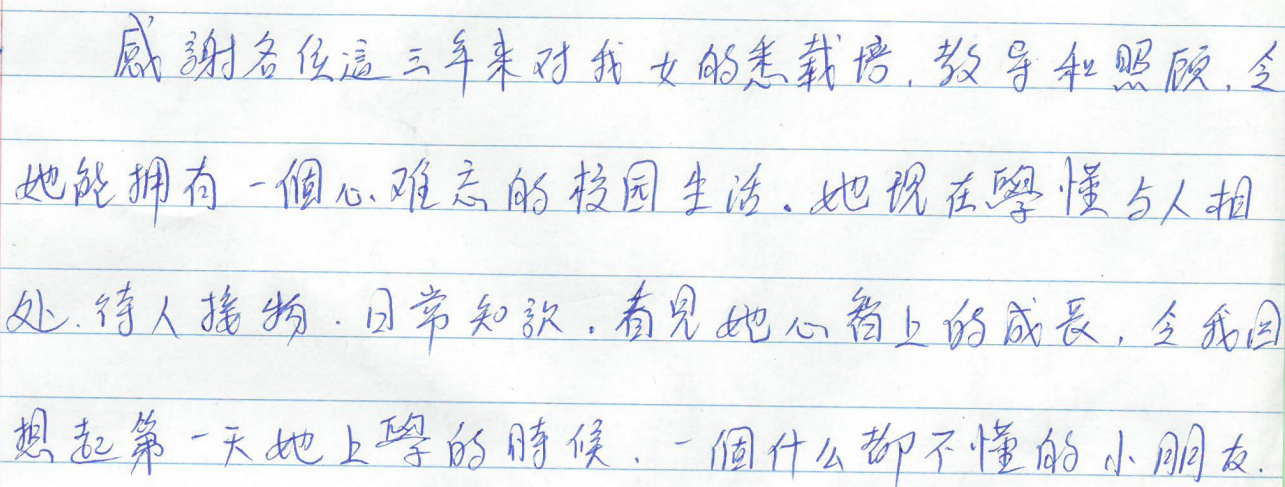 感謝各位這三年来对我女的悉栽培,教导和照顾,令
她能拥有一個心难忘的校园生活。她现在學懂与人相
处.待人接物.日常知识。看見她心智上的成長,令我回
想起第一天她上學的時候.一個什么都不懂的小朋友.